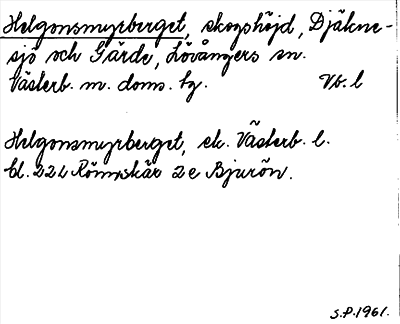 Helgonsmyrberget, skogshöjd, Djäkne-
sjö och Gärde, Lövångers sn.
Västerb. m. doms. tg. Vb. l
Helgonsmyrberget, ek. Västerb. l.
bl. 22L Rönnskär 2e Bjurön.
S.P.1961.